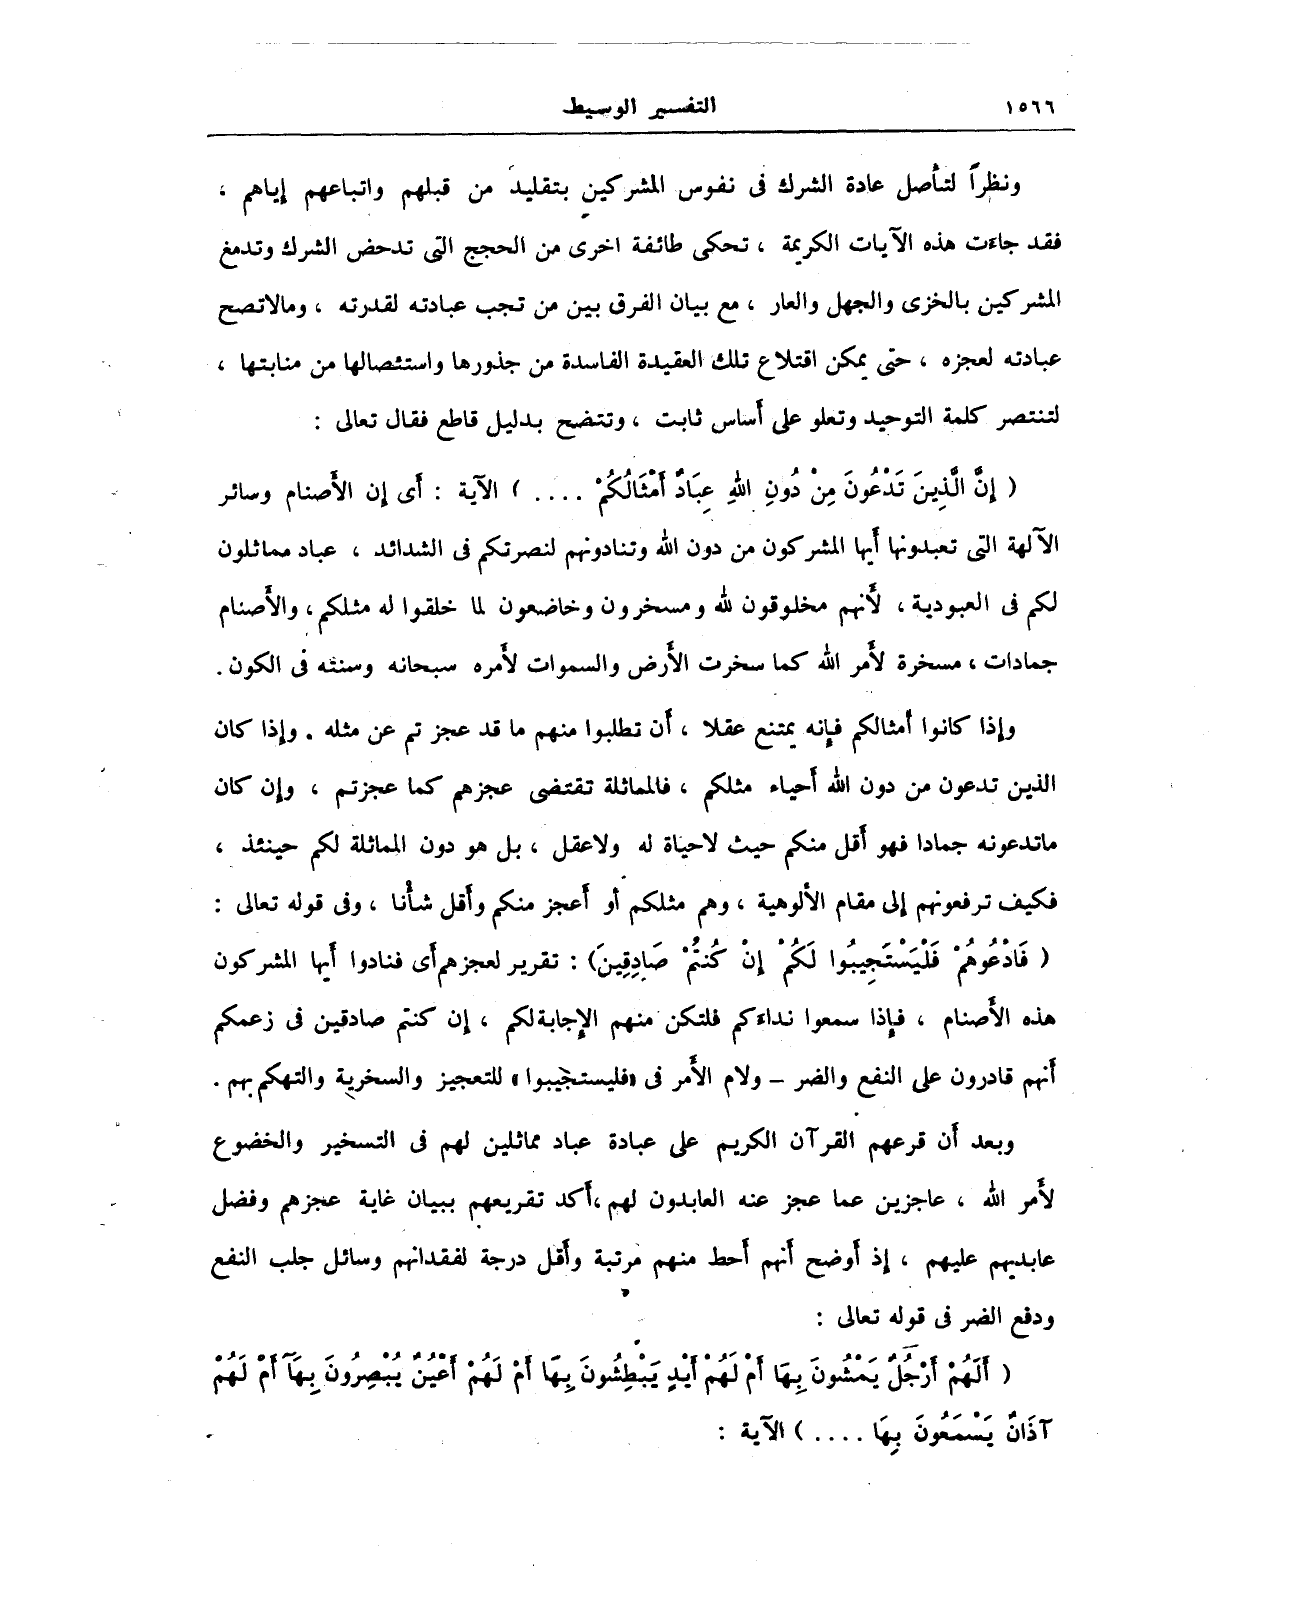 ١٥٦٦
التفسير الوسيط
ونظراً لتأصل عادة الشرك فى نفوس المشركين بتقليد من قبلهم واتباعهم إياهم ،
فقد جاءت هذه الآيات الكريمة ، تحكى طائفة اخرى من الحجج التى تدحض الشرك وتدمغ
المشركين بالخزى والجهل والعار ، مع بيان الفرق بين من تجب عبادته لقدرته ، ومالاتصح
عبادته لعجزه ، حتى يمكن اقتلاع تلك العقيدة الفاسدة من جذورها واستئصالها من منابتها ،
لتنتصر كلمة التوحيد وتعلو على أساس ثابت ، وتتضح بدليل قاطع فقال تعالى :
( إِنَّ الَّذِينَ تَدْعُونَ مِنْ دُونِ اللهِ عِبَادٌ أَمْثَالُكُمْ .... ) الآية : أى إن الأصنام وسائر
الآلهة التى تعبدونها أيها المشركون من دون الله وتنادونهم لنصرتكم فى الشدائد ، عباد مماثلون
لكم فى العبودية ، لأنهم مخلوقون لله ومسخرون وخاضعون لما خلقوا له مثلكم ، والأصنام
جمادات ، مسخرة لأمر الله كما سخرت الأرض والسموات لأمره سبحانه وسننه فى الكون .
وإذا كانوا أمثالكم فإنه يمتنع عقلا ، أن تطلبوا منهم ما قد عجز تم عن مثله . وإذا كان
الذين تدعون من دون الله أحياء مثلكم ، فالمماثلة تقتضى عجزهم كما عجزتم ، وإن كان
ماتدعونه جمادا فهو أقل منكم حيث لاحياة له ولاعقل ، بل هو دون المماثلة لكم حينئذ ،
فكيف ترفعونهم إلى مقام الألوهية ، وهم مثلكم أو أعجز منكم وأقل شأنا ، وفى قوله تعالى :
( فَادْعُوهُمْ فَلْيَسْتَجِيبُوا لَكُمْ إِنْ كُنتُمْ صَادِقِينَ) : تقرير لعجزهم أى فنادوا أيها المشركون
هذه الأصنام ، فإذا سمعوا نداءكم فلتكن منهم الإجابة لكم ، إن كنتم صادقين فى زعمكم
أنهم قادرون على النفع والضر – ولام الأمر فى «فليستجيبوا» للتعجيز والسخرية والتهكم بهم .
وبعد أن قرعهم القرآن الكريم على عبادة عباد مماثلين لهم فى التسخير والخضوع
لأمر الله ، عاجزين عما عجز عنه العابدون لهم ،أكد تقريعهم ببيان غاية عجزهم وفضل
عابديهم عليهم ، إذ أوضح أنهم أحط منهم مرتبة وأقل درجة لفقدانهم وسائل جلب النفع
ودفع الضر فى قوله تعالى :
( أَلَهُمْ أَرْجُلٌ يَمْشُونَ بِهَا أَمْ لَهُمْ أَيْدٍ يَبْطِشُونَ بِهَا أَمْ لَهُمْ أَعْيُنٌ يُبْصِرُونَ بِهَا أَمْ لَهُمْ
آذَانٌ يَسْمَعُونَ بِهَا .... ) الآية :